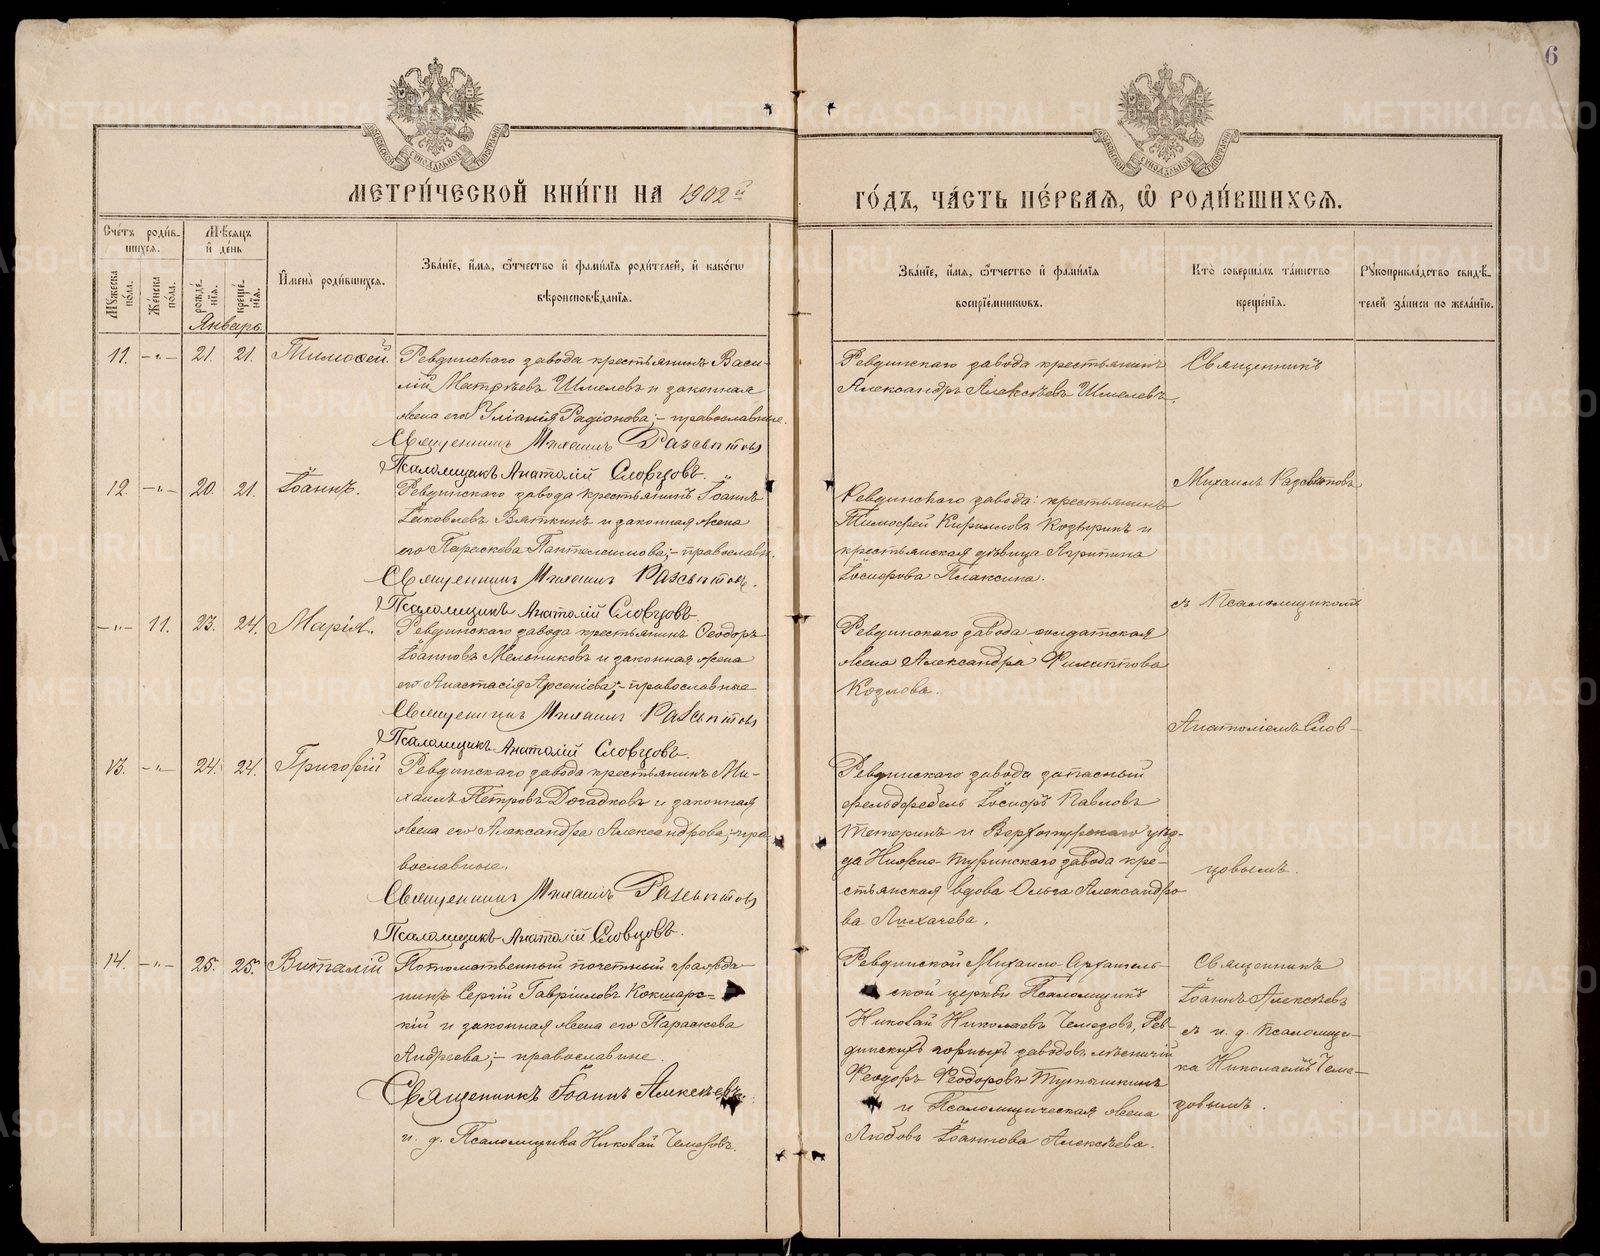 6
МЕТРИ́ЧЕСКОЙ КНИ́ГИ НА 1902й
ГО́ДЪ, ЧА́СТЬ ПЕ́РВАЯ, Ѿ РОДИ́ВШИХСЯ.
Сче́тъ роди́в-
шихся.
Му́жеска по́ла.
Же́нска по́ла.
Мѣ́сяцъ и де́нь
рожде́нія.
креще́нія.
Январь.
И́мена роди́вшихся.
Зва́ніе, и́мя, ѻ́тчество и фами́лія роди́телей, и како́гѡ
вѣроисповѣ́данія.
Зва́ніе, и́мя, ѻ́тчество и фами́лія
воспріе́мниковъ.
Кто̀ соверша́лъ та́инство
креще́нія.
Рꙋкоприкла́дство свидѣ́-
телей за́писи по жела́нію.
11. -„- 21. 21. Тимоѳей.
Ревдинскаго завода крестьянинъ Васи-
лій Матвѣевъ Шмелевъ и законная
жена его Уліанія Радіонова; - православные.
Священникъ Михаилъ Разсыптовъ
Псаломщикъ Анатолій Словцовъ.
Ревдинскаго завода крестьянинъ
Александръ Алексѣевъ Шмелевъ.
12. -„- 20. 21. Іоаннъ.
Ревдинскаго завода крестьянинъ Іоаннъ
Іаковлевъ Вяткинъ и законная жена
его Параскева Пантелеимова; - православн.
Священникъ Михаилъ
Псаломщикъ Анатолій Словцовъ
Ревдинскаго завода: крестьянинъ
Тимофей Кирилловъ Козыринъ и
крестьянская дѣвица Агрипина
Іосифова Плаксина.
-„- 11. 23. 24. Марія.
Ревдинскаго завода крестьянинъ Ѳеодоръ
Іоанновъ Мельниковъ и законная жена
его Анастасія Арсеніева; - православные
Священникъ Михаилъ
Псаломщикъ Анатолій Словцовъ.
Ревдинскаго завода солдатская
жена Александра Филиппова
Козлова.
13. -„- 24. 24. Григорій
Ревдинскаго завода крестьянинъ Ми-
хаилъ Петровъ Догадковъ и законная
жена его Александра Александрова; - пра-
вославные.
Священникъ Михаилъ
Псаломщикъ Анатолій Словцовъ.
Ревдинскаго завода запасный
фельдфебель Іосифъ Павловъ
Тетеринъ и Верхотурскаго уѣз-
да Нижне-Туринскаго завода кре-
стьянская вдова Ольга Александро
ва Лихачева.
Священникъ
Михаилъ
съ Псаломщикомъ
Анатоліемъ Слов-
цовымъ.
14. -„- 25. 25. Виталій
Потомственный почетный гражда-
нинъ Сергій Гавріиловъ Кокшарс=
кій и законная жена его Параскева
Андреева; - православные.
Священникъ Іоаннъ Алексѣевъ.
и. д. Псаломщика Николай Чемезовъ.
Ревдинской Михаило-Архангель-
ской церкви Псаломщикъ
Николай Николаевъ Чемезовъ, Рев-
динскихъ горныхъ заводовъ лѣсничій
Ѳеодоръ Ѳеодоровъ
и Псаломщическая жена
Любовь Іоаннова Алексѣева.
Священникъ
Іоаннъ Алексѣевъ
съ и. д. псаломщи-
ка Николаемъ Чеме-
зовымъ.
METRIKI.GASO-URAL.RU